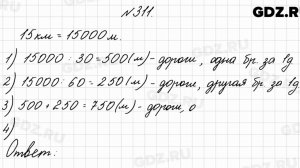 GDZ.RU
№311.
15км = 15000м.
1) 15000 : 30 = 500(м) - дороги, одна бр. за 1д
2) 15000 : 60 = 250(м) - дороги, другая бр. за 1д
3) 500 + 250 = 750(м) - дороги, о
4)
Ответ:
GDZ.RU